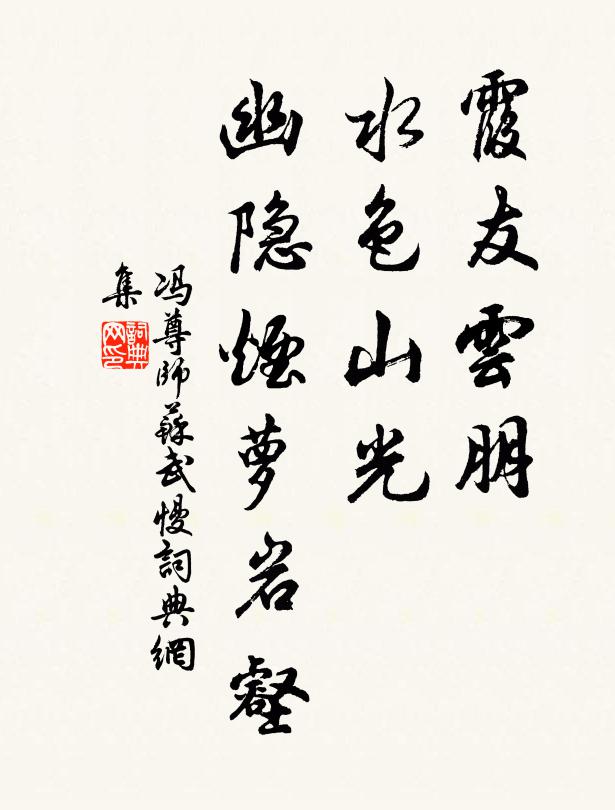 霞友雲朋
水色山光
幽隐煙萝岩壑
冯尊師蘇武慢詞典網
集
詞典網印